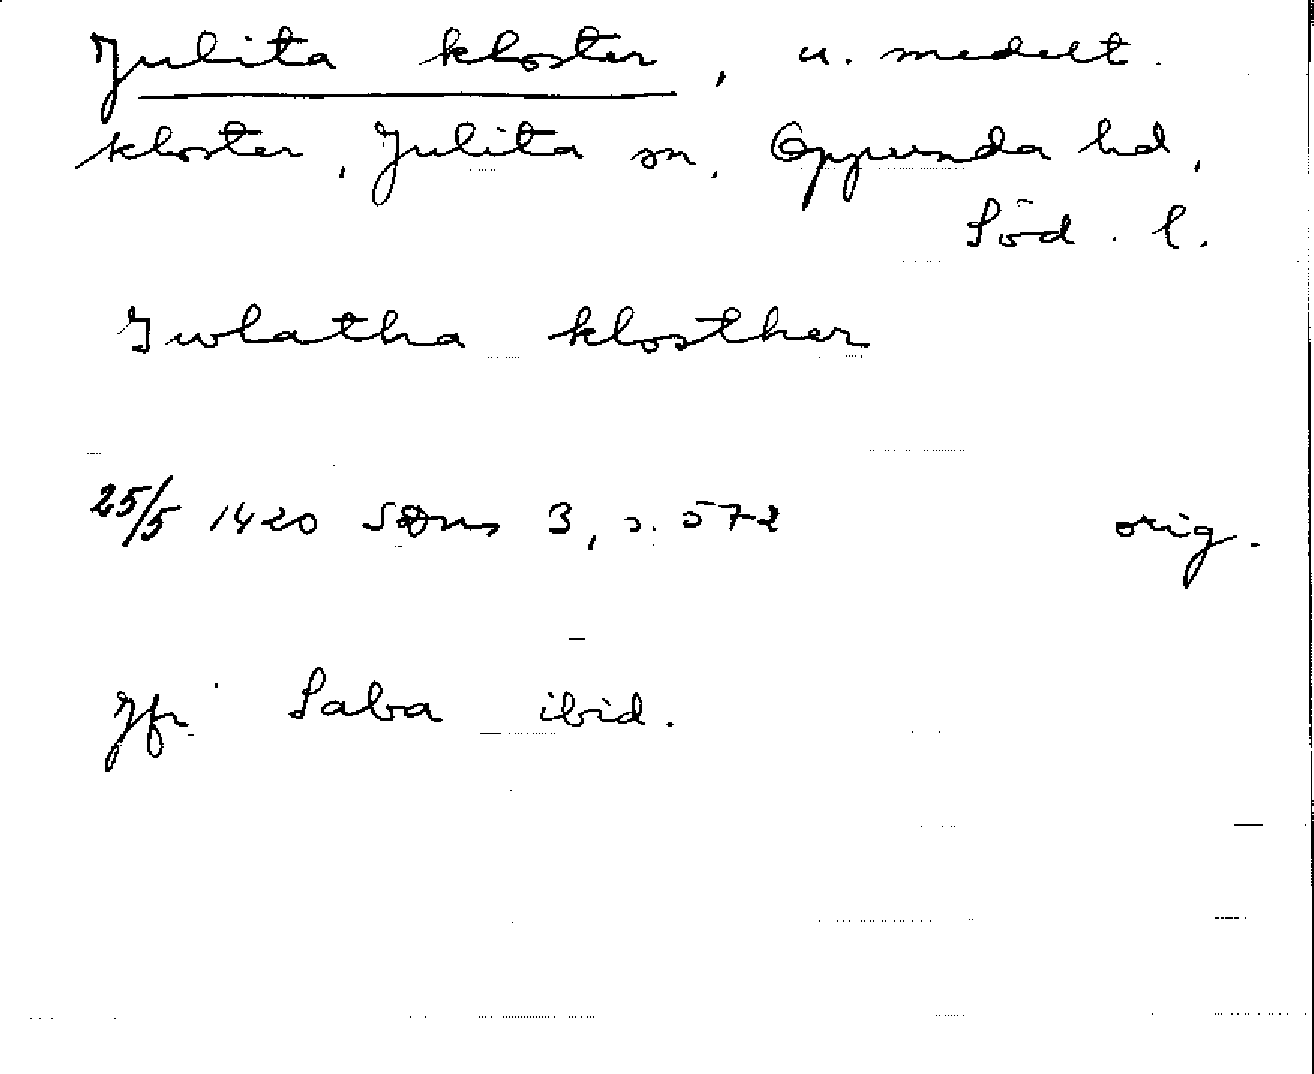 Julita kloster, u. medelt.
kloster, Julita sn, Oppunda hd,
Söd. l.
Iwlatha klosther
25/5 1420 SDns 3, s. 572 orig.
Jfr Saba ibid.